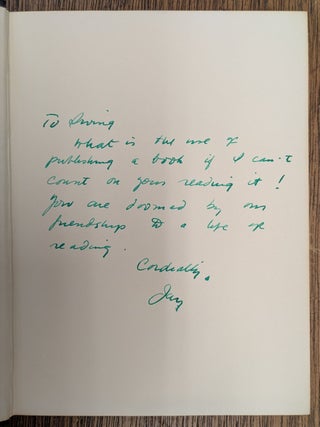 To Irving
What is the use of
publishing a book if I can't
count on your reading it!
You are doomed by our
friendship to a life of
reading.
Cordially,